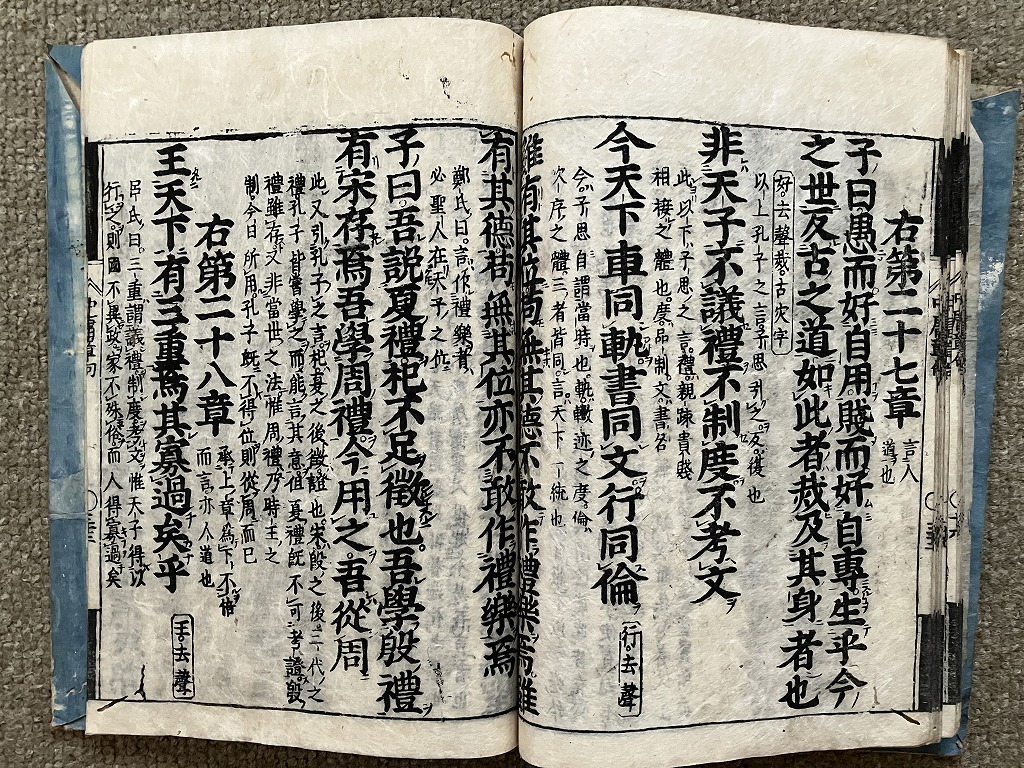 右第二十七章 言人道也
子曰愚而好自用賤而好自專生乎今
之世反古之道如此者烖及其身者也
好去聲烖古灾字
以上孔子之言子思引之反復也
非天子不議禮不制度不考文
此以下子思之言禮親疎貴賤
相接之體也度品制文書名
今天下車同軌書同文行同倫
行去聲
今子思自謂當時也軌轍迹之度倫
次序之體三者皆同言天下一統也
雖有其位苟無其德不敢作禮樂焉雖
有其德苟無其位亦不敢作禮樂焉
鄭氏曰言作禮樂者
必聖人在天子之位
子曰吾説夏禮杞不足徵也吾學殷禮
有宋存焉吾學周禮今用之吾從周
此又引孔子之言杞夏之後徵證也宋殷之後二代之
禮孔子皆嘗學之而能言其意但夏禮既不可考證殷
禮雖存又非當世之法惟周禮乃時王之
制今日所用孔子既不得位則從周而已
右第二十八章 承上章爲下不倍而言亦人道也
王天下有三重焉其寡過矣乎
王去聲
呂氏曰三重謂議禮制度考文惟天子得以
行之則國不異政家不殊俗而人得寡過矣